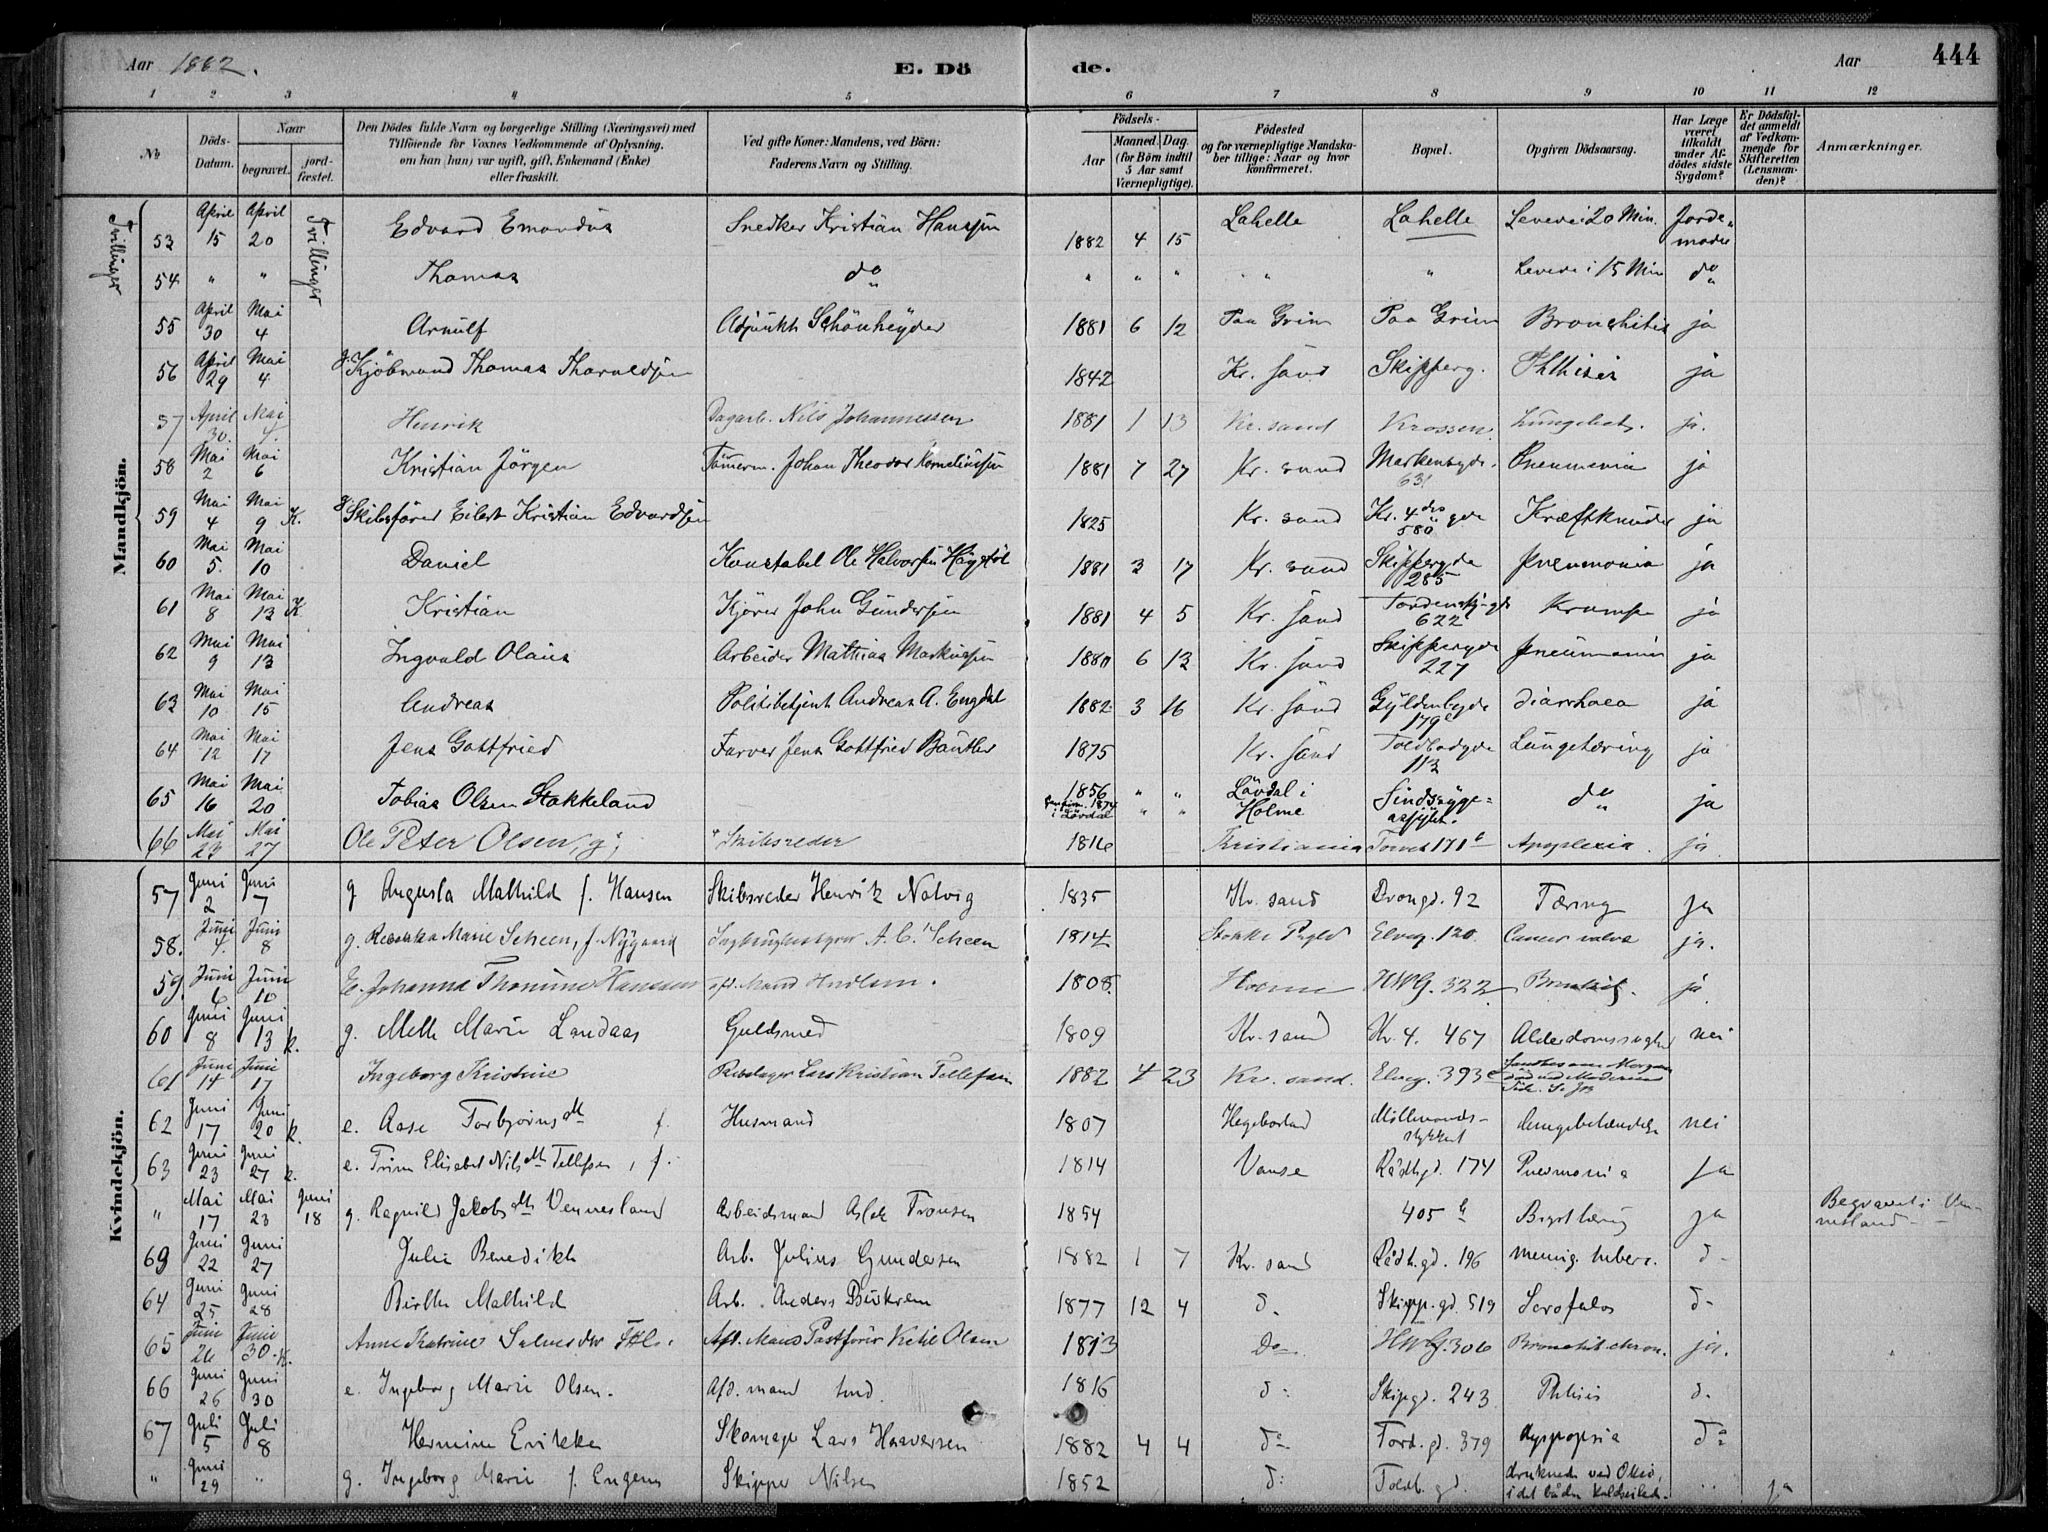 Aar 1882. E. Döde. Aar 444
1 2 3 4 5 6 7 8 9 10 11 12
No Döds-Datum. Naar begravet. jordfæstet. Den Dödes fulde Navn og borgerlige Stilling (Næringsvei) med Tilföiende for Voxnes Vedkommende af Oplysning, om han (hun) var ugift, gift, Enkemand (Enke) eller fraskilt. Ved gifte Koner: Mandens, ved Börn: Faderens Navn og Stilling. Födsels- Aar Maaned. Dag. (for Börn indtil 5 Aar samt Værnepligtige). Födested og for værnepligtige Mandskaber tillige: Naar og hvor konfirmeret. Bopæl. Opgiven Dödsaarsag. Har Læge været tilkaldt under Afdödes sidste Sygdom? Er Dödsfaldet anmeldt af Vedkommende for Skifteretten (Lensmanden)? Anmærkninger.
Mandkjön.
Tvillinger
53 April 15 April 20 Tvillinger Edvard Emandus Snedker Kristian Hanssen 1882 4 15 Lahelle Lahelle Levede i 20 Min. Jordemoder
54 " " Thomas do " " " " " Levede i 15 Min do
55 April 30 Mai 4 Arnulf Adjunkt Schönheyder 1881 6 12 Paa Grim Paa Grim Bronchitis ja
56 April 29 Mai 4 g. Kjöbmand Thomas Tharaldsen 1842 Kr. sand Skipperg. Phthisis ja
57 April 30. Mai 4. Henrik Dagarb. Nils Johannessen 1881 1 13 Kr. sand Krossen. Lungebet. ja.
58 Mai 2 Mai 6 Kristian Jörgen Tömerm. Johan Theodor Korneliussen 1881 7 27 Kr. sand Markensgde. 631 Pneumonia ja
59 Mai 4 Mai 9 K. g. Skibsförer Eilert Kristian Edvardsen 1825 Kr. sand Kr. 4des gde 580 Kræftknuder ja
60 Mai 5. Mai 10 Daniel Konstabel Ole Halvorsen Högstöl 1881 3 17 Kr. sand Skippergde 285 Pneumonia ja
61 Mai 8 Mai 13 K Kristian Kjörer John Gundersen 1881 4 5 Kr. sand Tordenskj. gde 622 Krampe ja
62 Mai 9 Mai 13 Ingvald Olaus Arbeider Mathias Markussen 1880 6 13 Kr. sand Skippergde 227 Pneumonia ja
63 Mai 10 Mai 15 Andreas Politibetjent Andreas A. Engdal 1882 3 16 Kr. sand Gyldenlgde 179e Diarrhoea ja
64 Mai 12 Mai 17 Jens Gottfried Farver Jens Gottfried Bautler 1875 Kr. sand Toldbodgde 113 Lungetæring ja
65 Mai 16 Mai 20 Tobias Olsen Stokkeland 1856 konfirm. 1874 i Lövdal " " Lövdal i Holme Sindssygeasylet. do ja
66 Mai 23 Mai 27 Ole Peter Olsen, g; Skibsreder 1816 Kristiania Torvet 171b Apoplexia. ja.
Kvindekjön.
57 Juni 2 Juni 7 g Augusta Mathild f. Hansen Skibsreder Henrik Natvig 1835 Kr. sand Drongd. 92 Tæring ja
58. Juni 4. Juni 8 g. Rebekka Marie Scheen, f. Nygaard A. C. Scheen 1814 Stokke Elveg. 120. Cancer ja.
59 Juni 6 Juni 10 E. Johanna Thomine Hanssen afd. Mand 1808. HWG. 322 Bronchit. ja.
60 Juni 8 Juni 13 k. g. Mette Marie Landaas Guldsmed 1809 Kr. sand Kr. 4. 467 Alderdomssvaghed nei
61 Juni 14 Juni 17 Ingeborg Kristine Rebslager Lars Kristian Tellefsen 1882 4 23 Kr. sand. Elveg. 393e
62 Juni 17 Juni 20 k. e. Aase Torbjörnsdtt f. Husmand 1807 Hegebostad Möllevands-stykket Lungebetændelse nei
63 Juni 23 Juni 27 k. e. Trine Elisabet Nilsdtt Tellefsen, f. 1814 Vanse Rådhgd. 174 Pneumonia ja
" Mai 17 Mai 23 Juni 18 g. Ragnild Jakobsdtt Vennesland Arbeidsmand Aslak Tronsen 1854 405 b Brysttæring ja Begravet i Vennesland
69 Juni 22 Juni 27 Julie Benedikte Arb. Julius Gundersen 1882 1 7 Kr. sand Rådh.gd. 196 mening. tuberc. d-
64 Juni 25 Juni 28 Birthe Mathild Arb. Anders Birkrem 1877 12 4 d. Skipp.gd. 519 Scrofulos d-
65 Juni 26 Juni 30. K. Anne Katrine Salvesdtr Afd. Mand Postförer Ketil Olsen 1813 Do HWG. 306 Bronchit. chron. ja.
66 Juni 26 Juni 30 e. Ingeborg Marie Olsen. Afd. mand 1816 d: Skipgd. 243 Phtisis d.
67 Juli 5 Juli 8 Hermine Erikka Skomager Lars Haaversen 1882 4 4 do Tord.gd. 379 Dyspepsia do
" Juni 29 " g. Ingeborg Marie f. Engene Skipper Nilsen 1852 d: Toldb. gd. druknede ved Oksö, i det båden kuldseilede. " ja